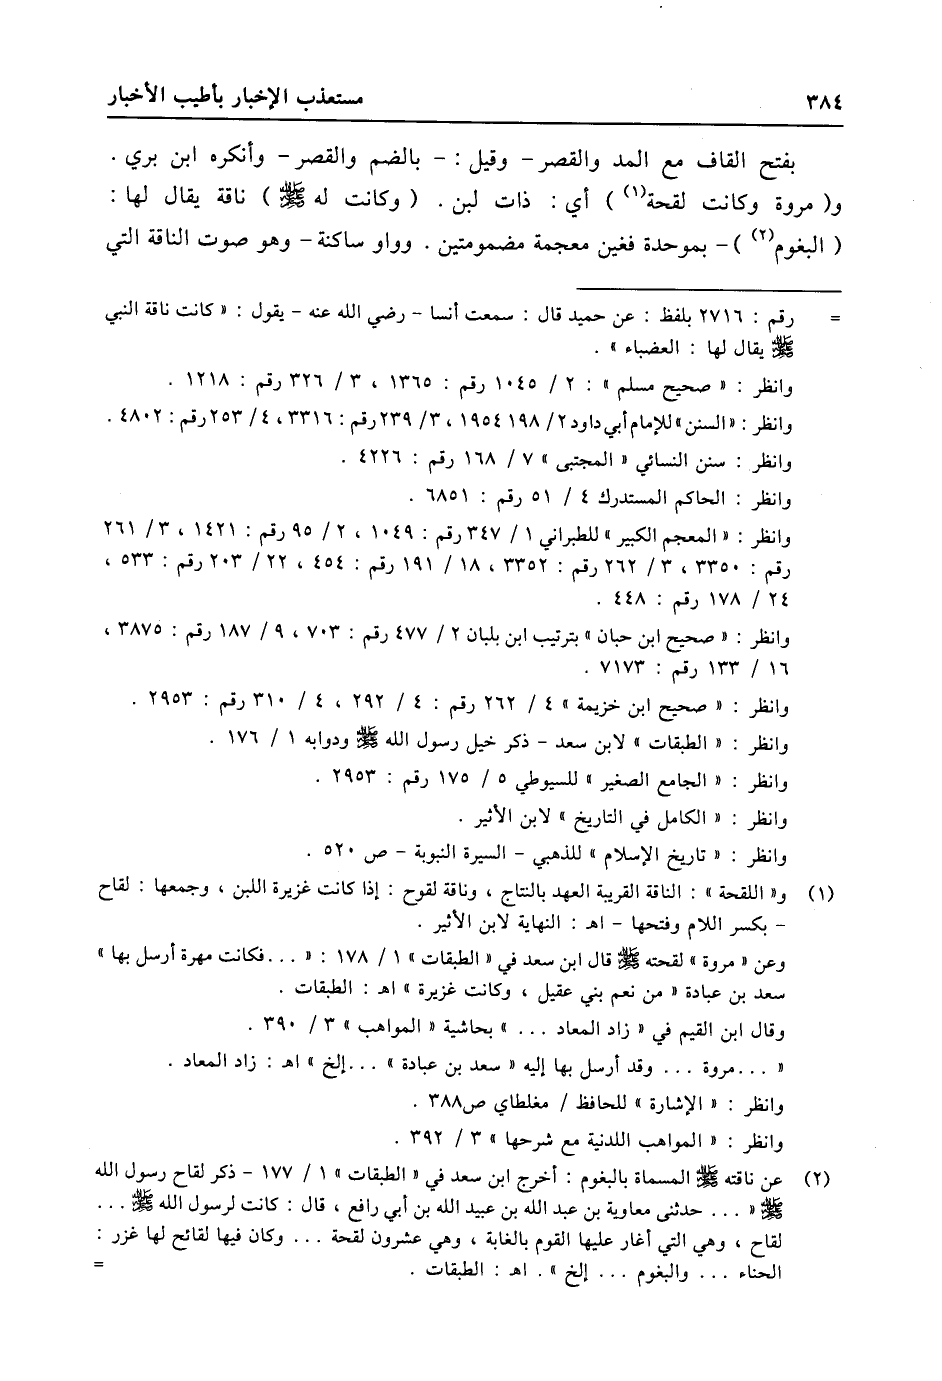 ٣٨٤ مستعذب الإخبار بأطيب الأخبار
بفتح القاف مع المد والقصر – وقيل : – بالضم والقصر – وأنكره ابن بري .
و( مروة وكانت لقحة(١) ) أي : ذات لبن . ( وكانت له ﷺ ) ناقة يقال لها :
( البغوم(٢) ) – بموحدة فغين معجمة مضمومتين . وواو ساكنة – وهو صوت الناقة التي
= رقم : ٢٧١٦ بلفظ : عن حميد قال : سمعت أنسا – رضي الله عنه – يقول : « كانت ناقة النبي
ﷺ يقال لها : العضباء » .
وانظر : « صحيح مسلم » : ٢ / ١٠٤٥ رقم : ١٣٦٥ ، ٣ / ٣٢٦ رقم : ١٢١٨ .
وانظر : «السنن» للإمام أبي داود ٢/ ١٩٨ ١٩٥٤ ، ٣/ ٢٣٩ رقم : ٣٣١٦ ، ٤/ ٢٥٣ رقم : ٤٨٠٢ .
وانظر : سنن النسائي « المجتبى » ٧ / ١٦٨ رقم : ٤٢٢٦ .
وانظر : الحاكم المستدرك ٤ / ٥١ رقم : ٦٨٥١ .
وانظر : « المعجم الكبير » للطبراني ١ / ٣٤٧ رقم : ١٠٤٩ ، ٢ / ٩٥ رقم : ١٤٢١ ، ٣ / ٢٦١
رقم : ٣٣٥٠ ، ٣ / ٢٦٢ رقم : ٣٣٥٢ ، ١٨ / ١٩١ رقم : ٤٥٤ ، ٢٢ / ٢٠٣ رقم : ٥٣٣ ،
٢٤ / ١٧٨ رقم : ٤٤٨ .
وانظر : « صحيح ابن حبان » بترتيب ابن بلبان ٢ / ٤٧٧ رقم : ٧٠٣ ، ٩ / ١٨٧ رقم : ٣٨٧٥ ،
١٦ / ١٣٣ رقم : ٧١٧٣ .
وانظر : « صحيح ابن خزيمة » ٤ / ٢٦٢ رقم : ٤ / ٢٩٢ ، ٤ / ٣١٠ رقم : ٢٩٥٣ .
وانظر : « الطبقات » لابن سعد – ذكر خيل رسول الله ﷺ ودوابه ١ / ١٧٦ .
وانظر : « الجامع الصغير » للسيوطي ٥ / ١٧٥ رقم : ٢٩٥٣ .
وانظر : « الكامل في التاريخ » لابن الأثير .
وانظر : « تاريخ الإسلام » للذهبي – السيرة النبوية – ص ٥٢٠ .
(١) و« اللقحة » : الناقة القريبة العهد بالنتاج ، وناقة لقوح : إذا كانت غزيرة اللبن ، وجمعها : لقاح
– بكسر اللام وفتحها – اهـ : النهاية لابن الأثير .
وعن « مروة » لقحته ﷺ قال ابن سعد في « الطبقات » ١ / ١٧٨ : « ...فكانت مهرة أرسل بها »
سعد بن عبادة « من نعم بني عقيل ، وكانت غزيرة » اهـ : الطبقات .
وقال ابن القيم في « زاد المعاد ... » بحاشية « المواهب » ٣ / ٣٩٠ .
« ...مروة ... وقد أرسل بها إليه « سعد بن عبادة » ...إلخ » اهـ : زاد المعاد .
وانظر : « الإشارة » للحافظ / مغلطاي ص٣٨٨ .
وانظر : « المواهب اللدنية مع شرحها » ٣ / ٣٩٢ .
(٢) عن ناقته ﷺ المسماة بالبغوم : أخرج ابن سعد في « الطبقات » ١ / ١٧٧ – ذكر لقاح رسول الله
ﷺ « ... حدثنى معاوية بن عبد الله بن عبيد الله بن أبي رافع ، قال : كانت لرسول الله ﷺ ...
لقاح ، وهي التي أغار عليها القوم بالغابة ، وهي عشرون لقحة ... وكان فيها لقائح لها غزر :
الحناء ... والبغوم ... إلخ » . اهـ : الطبقات . =